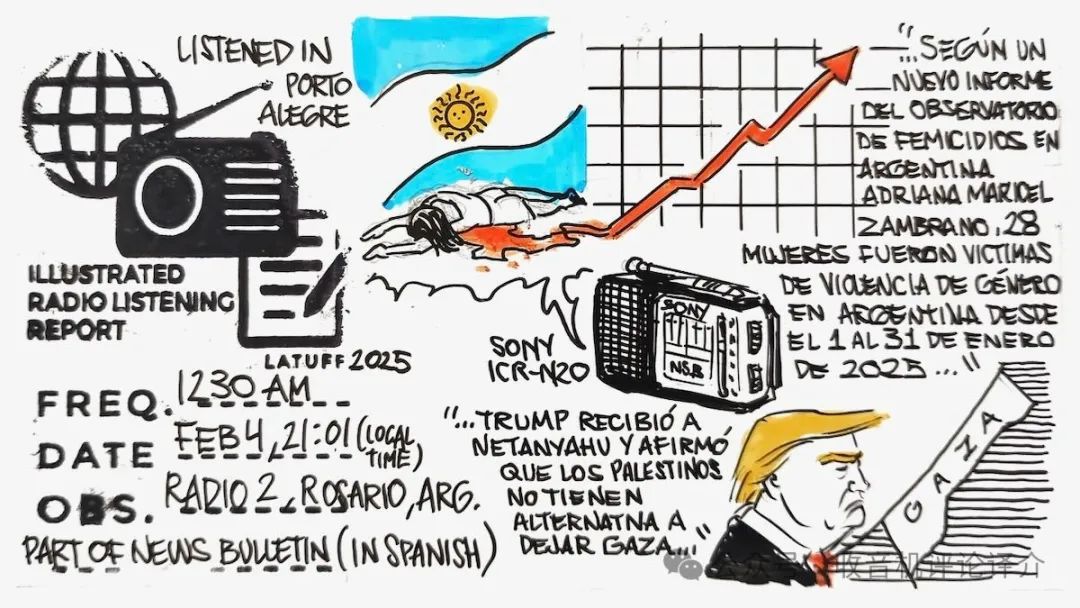 LISTENED IN
PORTO
ALEGRE
ILLUSTRATED
RADIO LISTENING
REPORT
LATUFF 2025
FREQ. 1230 AM
DATE FEB 4, 21:01 (LOCAL
TIME)
OBS. RADIO 2, ROSARIO, ARG.
PART OF NEWS BULLETIN (IN SPANISH)
"...SEGÚN UN
NUEVO INFORME
DEL OBSERVATORIO
DE FEMICIDIOS EN
ARGENTINA
ADRIANA MARICEL
ZAMBRANO, 28
MUJERES FUERON VICTIMAS
DE VIOLENCIA DE GÉNERO
EN ARGENTINA DESDE
EL 1 AL 31 DE ENERO
DE 2025..."
SONY
NSB
SONY
ICR-N20
"...TRUMP RECIBIÓ A
NETANYAHU Y AFIRMÓ
QUE LOS PALESTINOS
NO TIENEN
ALTERNATIVA A
DEJAR GAZA..."
GAZA
公众号 · 收音机评论译介